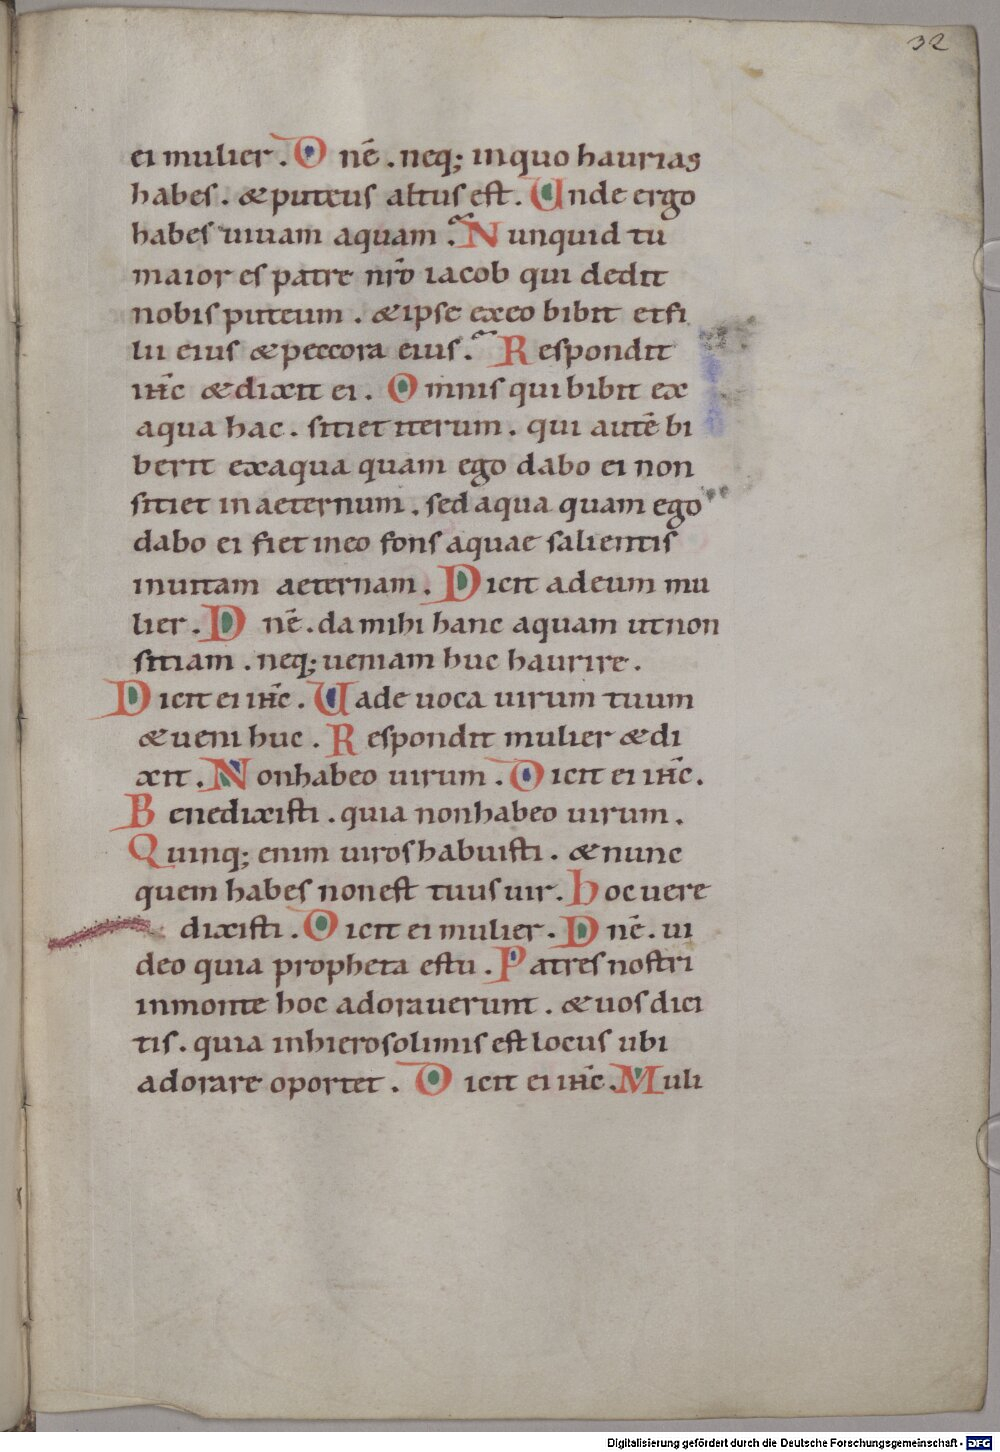 32
ei mulier. Dnē. neq; inquo haurias
habes. & puteus altus est. Unde ergo
habes uiuam aquam. Nunquid tu
maior es patre nr̄o iacob qui dedit
nobis puteum. & ipse exeo bibit et fi
lii eius & peccora eius. Respondit
ihc̄ & dixit ei. Omnis qui bibit ex
aqua hac. sitiet iterum. qui autē bi
berit exaqua quam ego dabo ei non
sitiet in aeternum. sed aqua quam ego
dabo ei fiet ineo fons aquae salientis
inuitam aeternam. Dicit adeum mu
lier. Dnē. da mihi hanc aquam utnon
sitiam. neq; ueniam huc haurire.
Dicit ei ihc̄. Uade uoca uirum tuum
& ueni huc. Respondit mulier & di
xit. Nonhabeo uirum. Dicit ei ihc̄.
Benedixisti. quia nonhabeo uirum.
Quinq; enim uiros habuisti. & nunc
quem habes nonest tuus uir. hoc uere
dixisti. Dicit ei mulier. Dnē. ui
deo quia propheta estu. Patres nostri
inmonte hoc adorauerunt. & uos dici
tis. quia inhierosolimis est locus ubi
adorare oportet. Dicit ei ihc̄. Muli
Digitalisierung gefördert durch die Deutsche Forschungsgemeinschaft - DFG